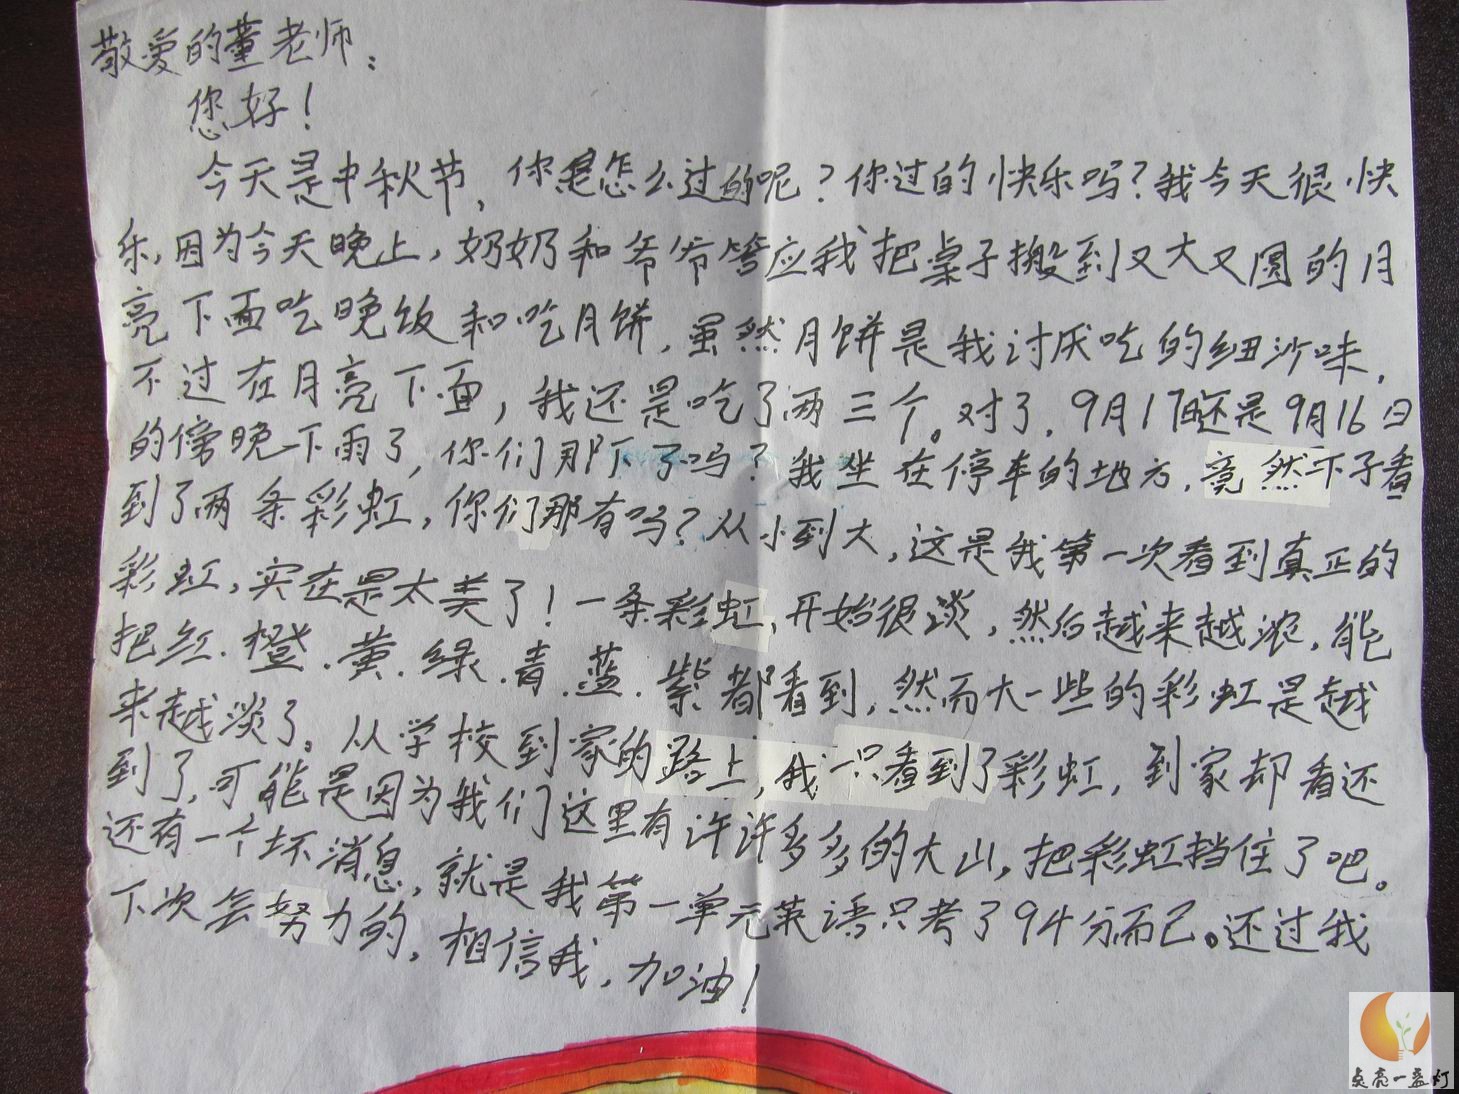 敬爱的董老师：
您好！
今天是中秋节，你是怎么过的呢？你过的快乐吗？我今天很快
乐，因为今天晚上，奶奶和爷爷答应我把桌子搬到又大又圆的月
亮下面吃晚饭和吃月饼，虽然月饼是我讨厌吃的细沙味，
不过在月亮下面，我还是吃了两三个。对了，9月17日还是9月16日
的傍晚下雨了，你们那下了吗？我坐在停车的地方，竟然下子看
到了两条彩虹，你们那有吗？从小到大，这是我第一次看到真正的
彩虹，实在是太美了！一条彩虹，开始很淡，然后越来越浓，能
把红.橙.黄.绿.青.蓝.紫都看到，然而大一些的彩虹是越
来越淡了。从学校到家的路上，我一只看到了彩虹，到家却看还
到了，可能是因为我们这里有许许多多的大山，把彩虹挡住了吧。
还有一个坏消息，就是我第一单元英语只考了94分而已。还过我
下次会努力的，相信我，加油！
点亮一盏灯